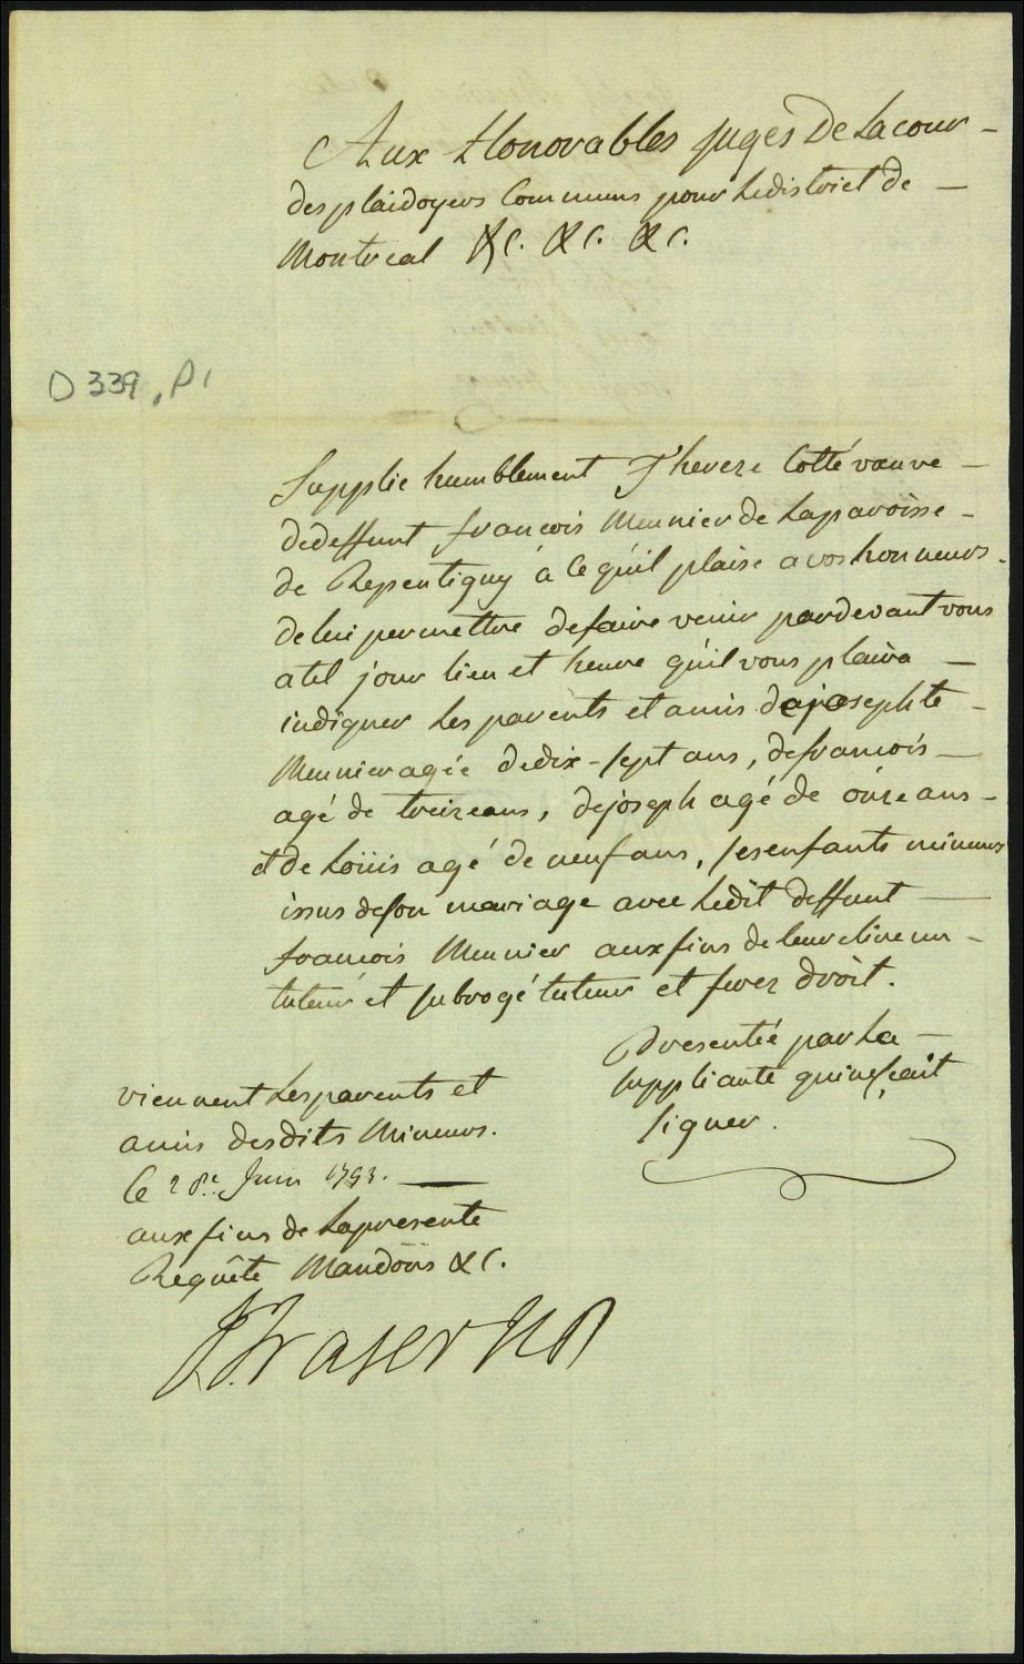 Aux Honorables Juges De La cour -
des plaidoyers Communs pour Le district de -
Montréal &c. &c. &c.
D 339, P1
Supplie humblement Therere Cotté veuve -
de deffunt francois Meunier de La paroisse -
de Repentigny à Ce qu'il plaise a vos honneurs
de lui permettre de faire venir par devant vous
a tel jour lieu et heure qu'il vous plaira -
indiquer Les parents et amis de josephte -
Meunier agée de dix-sept ans, de francois -
agé de treize ans, de joseph agé de onze ans -
et de Loüis agé de neuf ans, ses enfants mineurs
issus de son mariage avec Ledit deffunt -
francois Meunier aux fins de leur elire un -
tuteur et subrogé tuteur et ferez droit.
Presentée par La -
suppliante qui ne sçait
signer.
viennent Les parents et
amis desdits Mineurs.
Ce 28e. Juin 1793. -
aux fins de La presente
Requête Mandons &c.
J. Fraser